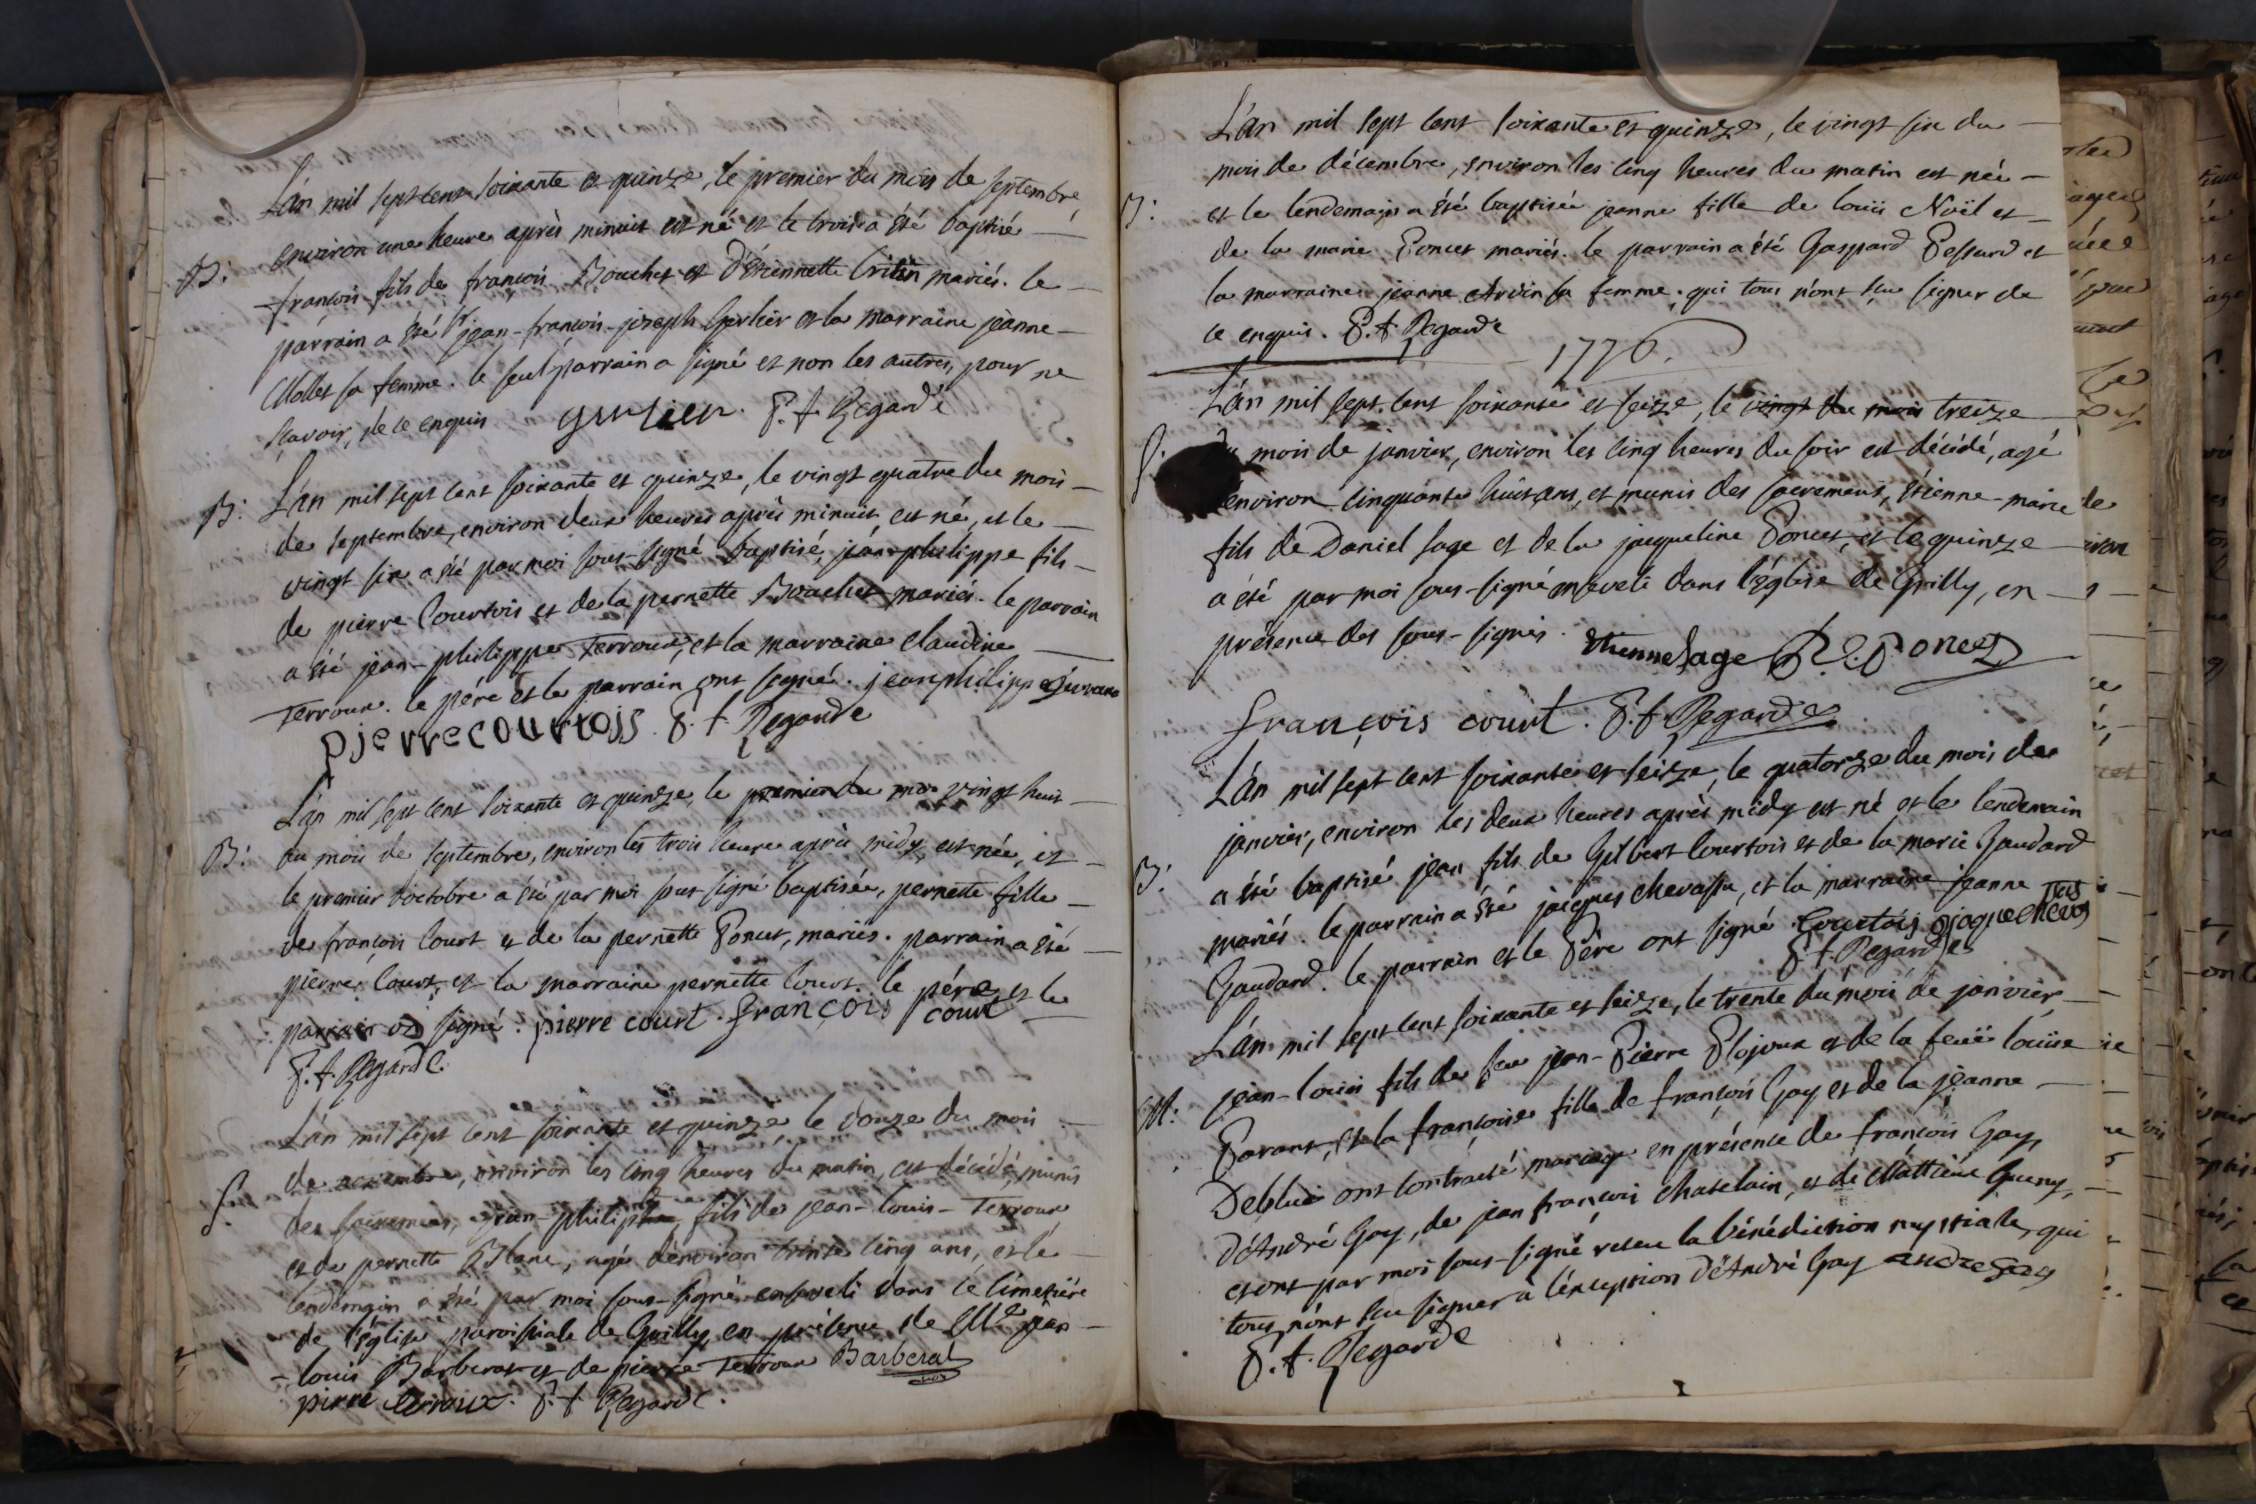 L'an mil sept cent soixante et quinze, le premier du mois de septembre,
environ une heure après minuit est né et le trois a été baptisé
B: françois fils de françois Bouchet et d'étiennette mariés. le
parrain a été jean-françois-joseph Gerlier et la marraine jeanne
Mollet sa femme. le seul parrain a signé et non les autres, pour ne
sçavoir, de ce enquis gerlier. P. f. Regarde
B: L'an mil sept cent soixante et quinze, le vingt quatre du mois
de septembre, environ deux heures après minuit, est né, et le
vingt six a été par moi sous-signé baptisé, jean-philippe fils
de pierre Courtois et de la pernette Bouchet mariés. le parrain
a été jean-philippe Terroux, et la marraine claudine
Terroux. le pére et le parrain ont signé. jean philippe
pierre courtois. P. f. Regarde
L'an mil sept cent soixante et quinze, le premier du mois vingt huit
B: du mois de septembre, environ les trois heures après midy, est née, et
le premier d'octobre a été par moi sous signé baptisée, pernette fille
de françois Court et de la pernette Poncet, mariés. parrain a été
pierre Court, et la marraine pernette Court. le pére et le
parrain ont signé. pierre court. françois court
P. f. Regarde.
L'an mil sept cent soixante et quinze, le douze du mois
de novembre, environ les cinq heures du matin, est décédé, munis
S. des sacremens, jean-philippe, fils de jean-louis-Terroux
et de pernette Blanc, agé d'environ trente cinq ans, et le
lendemain a été par moi sous-signé enseveli dans le cimetiére
de l'église paroissiale de Grilly, en présence de Me jean
louis Barberat et de pierre Terroux Barberat
pirre terroux. P. f. Regarde.
L'an mil sept cent soixante et quinze, le vingt six du
mois de décembre, environ les cinq heures du matin est née
B: et le lendemain a été baptisée jeanne fille de louis Noël et
de la marie Poncet mariés. le parrain a été Gaspard Pessard et
la marraine jeanne Arvin sa femme. qui tous n'ont sçu signer de
ce enquis. P. f. Regarde
1776.
L'an mil sept cent soixante et seize, le vingt du mois treize
S. du mois de janvier, environ les cinq heures du soir est décédé, agé
d'environ cinquante huit ans, et munis des sacremens, étienne-marie
fils de Daniel Sage et de la jacqueline Poncet, et le quinze
a été par moi sous-signé enseveli dans l'église de Grilly, en
présence des sous-signés. étienne Sage Poncet
françois court. P. f. Regarde
L'an mil sept cent soixante et seize, le quatorze du mois de
janvier, environ les deux heures après midy est né et le lendemain
B: a été baptisé jean fils de Gilbert Courtois et de la marie Gaudard
mariés. le parrain a été jacques chevassu, et la marraine jeanne
Gaudard. le parrain et le Père ont signé Courtois
P. f. Regarde
L'an mil sept cent soixante et seize, le trente du mois de janvier,
jean-louis fils de feu jean-Pierre Plojoux et de la feuë louïse
M: Pavant, et la françoise fille de françois Gay et de la jeanne
Debluë ont contracté mariage en présence de françois Gay,
d'André Gay, de jean françois chatelain, et de Matthieu Gueny,
et ont par moi sous-signé reçu la bénédiction nuptiale, qui
tous n'ont sçu signer à l'exception d'André Gay andre gay
P. f. Regarde